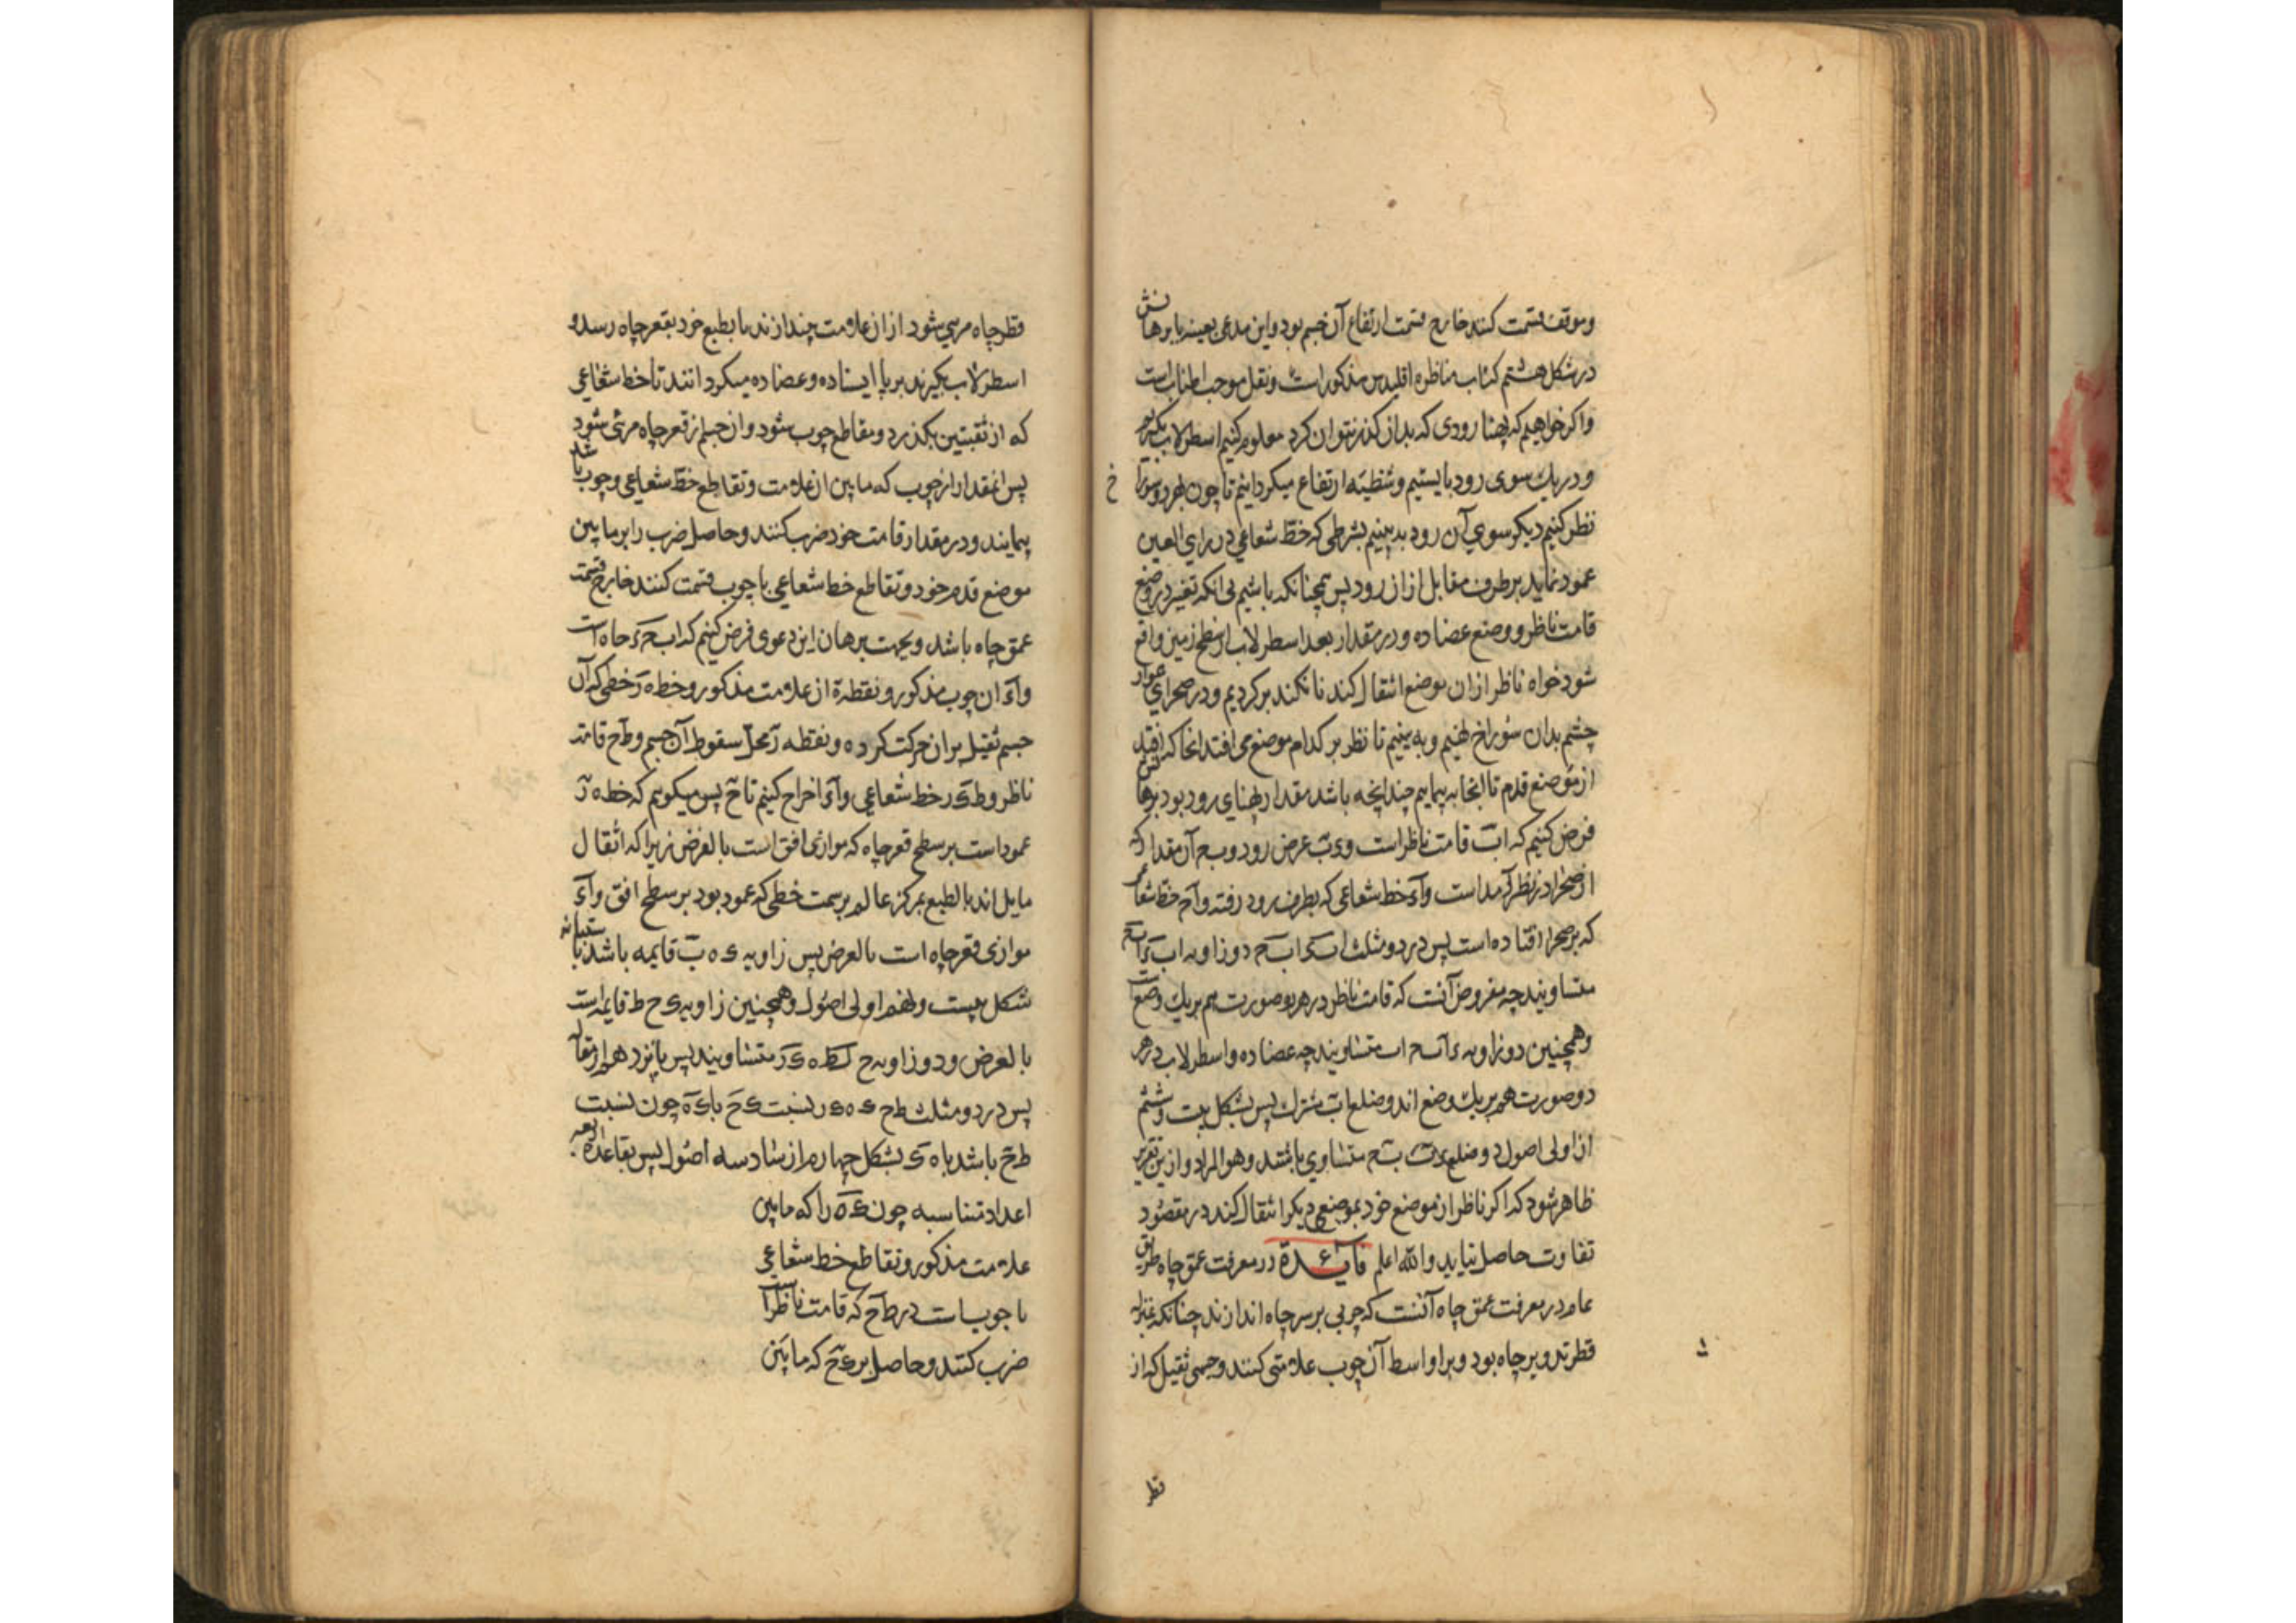 وموقف قسمت کنند خارج قسمت ارتفاع آن جسم بود واین مدعی بعینه با برهانش
در شکل هشتم کتاب مناظره اقلیدس مذکور است ونقل موجب اطنابست
واکر خواهیم که پهنا رودی که بدان کذر نتوان کرد معلوم کنیم اسطرلاب بکیریم
ودر یک سوی رود بایستیم وشظیّه ارتفاع میکردانیم تا چون بهر دو سوراخ
نظر کنیم دیکر سوی آن رود به بینیم بشرطی که خطّ شعاعی در رای العین
عمود نماید بر طرف مقابل از ان رود پس همچنانکه باشیم بی انکه تغیّر در وضع
قامت ناظر ووضع عضاده ودر مقدار بعد اسطرلاب از سطح زمین واقع
شود خواه ناظر ازان موضع انتقال کند یا نکند برکردیم ودر صحرای هموار
چشم بدان سوراخ نهیم وبه بینیم تا نظر بر کدام موضع می افتد انجا که افتد
از موضع قدم تا انجا به پیماییم چندانچه باشد مقدار پهنای رود بود برهانش
فرض کنیم که اب قامت ناظر است وءب عرض رود وبح آن مقدار که
از صحرا در نظر آمد است واء خط شعاعی که بطرف رود رفته واح خطّ شعاعی
که بر صحرا افتاده است پس در دو مثلث ابء ابح دو زاویه ابء ابح
متساویند چه مفروض آنست که قامت ناظر در هر دو صورت هم بر یک وضع است
وهمچنین دو زاویه ءاب حاب متساویند چه عضاده واسطرلاب در هر
دو صورت هم بر یک وضع اند وضلع اب مشترک پس بشکل بیست وششم
از اولی اصول دو ضلع ءب بح متساوی باشند وهو المراد واز ین تقریر
ظاهر شود که اکر ناظر از موضع خود بموضعی دیکر انتقال کند در مقصود
تفاوت حاصل نیاید والله اعلم فایده در معرفت عمق چاه طریق
عام در معرفت عمق چاه آنست که چوبی بر سر چاه اندازند چنانکه بمنزله
قطر تدویر چاه بود وبر اواسط آن چوب علامتی کنند وجسمی ثقیل که از
قطر
قطر چاه مرئی شود از ان علامت بیندازند تا بطبع خود بقعر چاه رسد و
اسطرلاب بکیرند بر پا ایستاده وعضاده میکردانند تا خط شعاعی
که از ثقبتین بکذرد ومقاطع چوب شود وان جسم از قعر چاه مرئی شود
پس انمقدار از چوب که ما بین ان علامت وتقاطع خطّ شعاعی وچوب باشد
پیمایند ودر مقدار قامت خود ضرب کنند وحاصل ضرب را بر ما بین
موضع قدم خود وتقاطع خط شعاعی با چوب قسمت کنند خارج قسمت
عمق چاه باشد وبجهت برهان این دعوی فرض کنیم که ابحء چاه است
واء ان چوب مذکور ونقطه ه از علامت مذکور وخط ه ر خطی که آن
جسم ثقیل بران حرکت کرده ونقطه ر محلّ سقوط آن جسم وطح قامت
ناظر وطءر خط شعاعی واء اخراج کنیم تا ح پس میکویم که خط ه ر
عمود است بر سطح قعر چاه که موازی افق است بالفرض زیرا که اثقال
مایل اند بالطبع بمرکز عالم بر سمت خطی که عمود بود بر سطح افق واء
موازی قعر چاه است بالفرض پس زاویه ء ه ر قایمه باشد باستبانه
شکل بیست ونهم اولی اصول وهمچنین زاویه ء ح ط قایمه است
بالفرض ودو زاویه ح ءط ه ءر متساویند پس بپانزدهم از مقاله
پس در دو مثلث طح ء ه ء ر نسبت ءح با ءه چون نسبت
طح باشد با ه ر بشکل چهارم از سادسه اصول پس بقاعده اربعه
اعداد متناسبه چون ءه را که ما بین
علامت مذکور وتقاطع خط شعاعی
با چوبست در طح که قامت ناظر است
ضرب کنند وحاصل بر ءح که ما بین